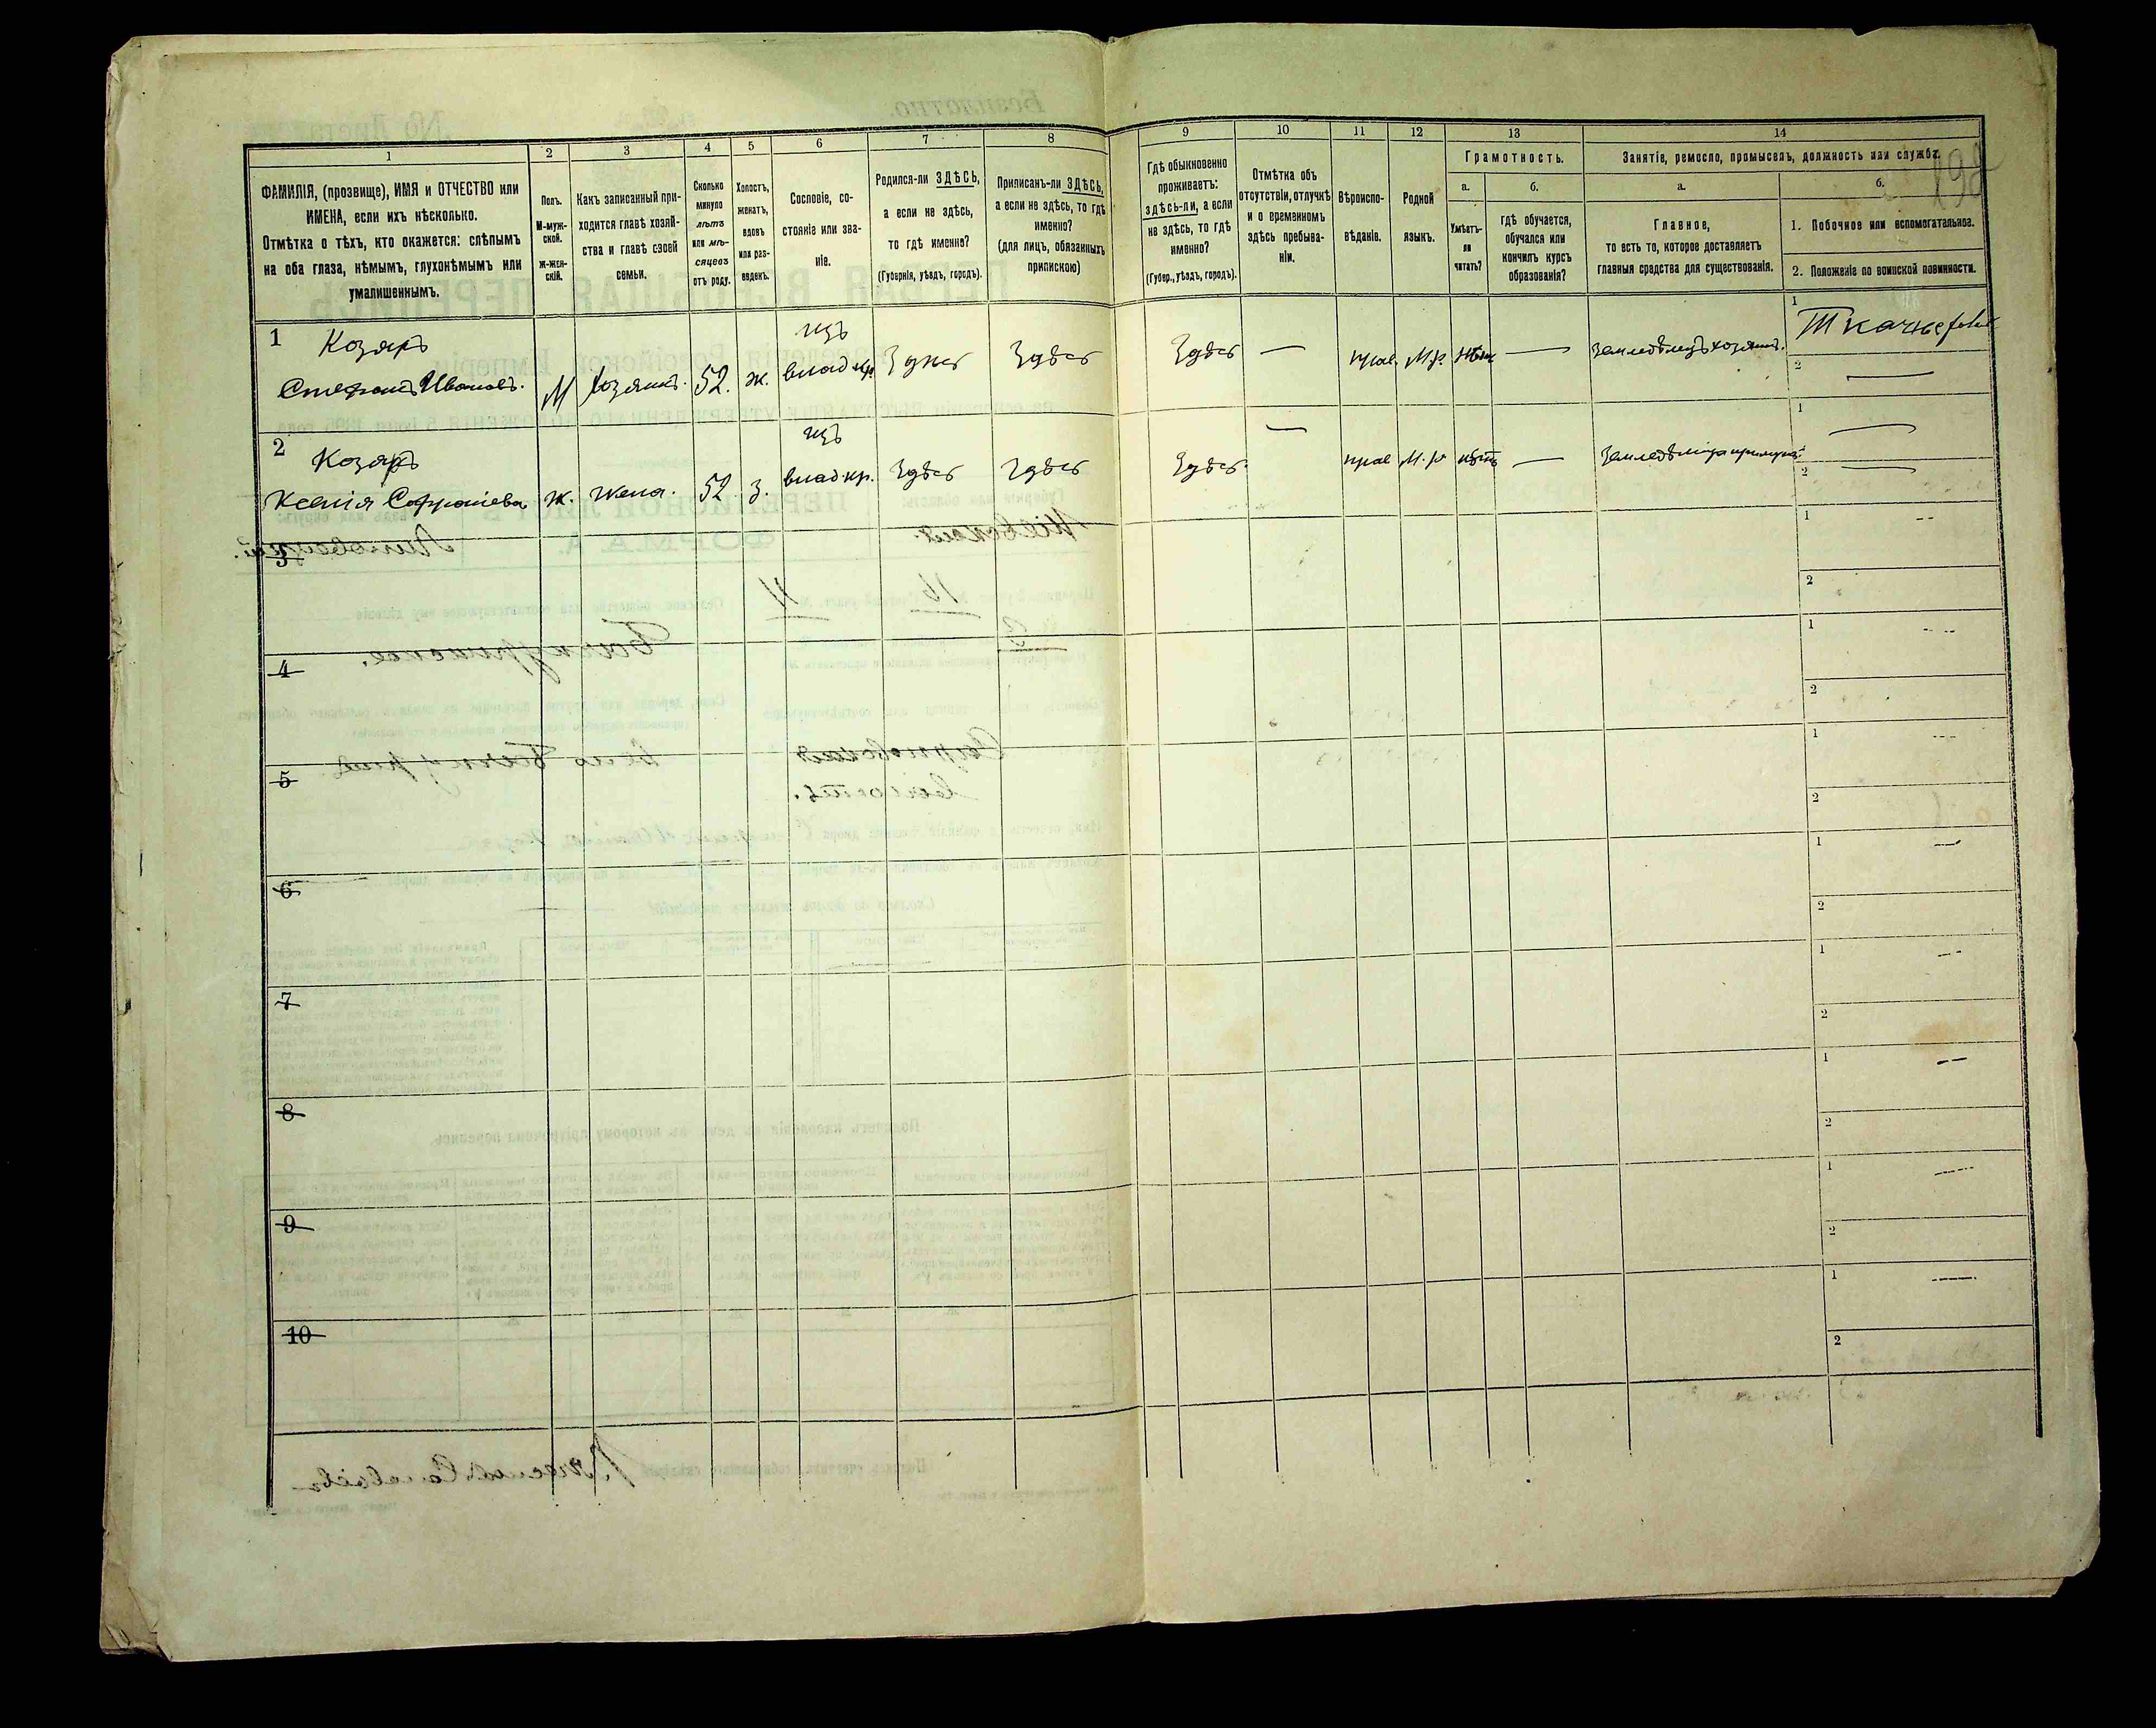 1 2 3 4 5 6 7 8 9 10 11 12 13 14
ФАМИЛІЯ, (прозвище), ИМЯ и ОТЧЕСТВО или
ИМЕНА, если ихъ нѣсколько.
Отмѣтка о тѣхъ, кто окажется: слѣпымъ
на оба глаза, нѣмымъ, глухонѣмымъ или
умалишеннымъ.
Полъ.
М-муж-
ской.
Ж-жен-
скій.
Какъ записанный при-
ходится главѣ хозяй-
ства и главѣ своей
семьи.
Сколько
минуло
лѣтъ
или мѣ-
сяцевъ
отъ роду.
Холостъ,
женатъ,
вдовъ
или раз-
веденъ.
Сословіе, со-
стояніе или зва-
ніе.
Родился-ли ЗДѢСЬ,
а если не здѣсь,
то гдѣ именно?
(Губернія, уѣздъ, городъ).
Приписанъ-ли ЗДѢСЬ,
а если не здѣсь, то гдѣ
именно?
(для лицъ, обязанныхъ
припискою)
Гдѣ обыкновенно
проживаетъ:
здѣсь-ли, а если
не здѣсь, то гдѣ
именно?
(Губер., уѣздъ, городъ).
Отмѣтка объ
отсутствіи, отлучкѣ
и о временномъ
здѣсь пребыва-
ніи.
Вѣроиспо-
вѣданіе.
Родной
языкъ.
Грамотность.
а.
Умѣетъ-
ли
читать?
б.
гдѣ обучается,
обучался или
кончилъ курсъ
образованія?
Занятіе, ремесло, промыселъ, должность или служба.
а.
Главное,
то есть то, которое доставляетъ
главныя средства для существованія.
б.
1. Побочное или вспомогательное.
2. Положеніе по воинской повинности.
1 Козяръ
Стефанъ Ивановъ. М Хозяинъ. 52. ж. изъ влад кр. Здѣсь Здѣсь Здѣсь — прав. М.р. нѣтъ — Земледѣлецъ хозяинъ.
1
2 —
2 Козяръ
Ксенія Софроніева Ж. жена. 52 з. изъ влад кр. Здѣсь Здѣсь Здѣсь — прав М.р нѣтъ —
1 —
2 —
3 1 --
2
4 1 --
2
5 1 --
2
6 1 —
2
7 1 --
2
8 1 --
2
9 1 --
2
10 1 --
2